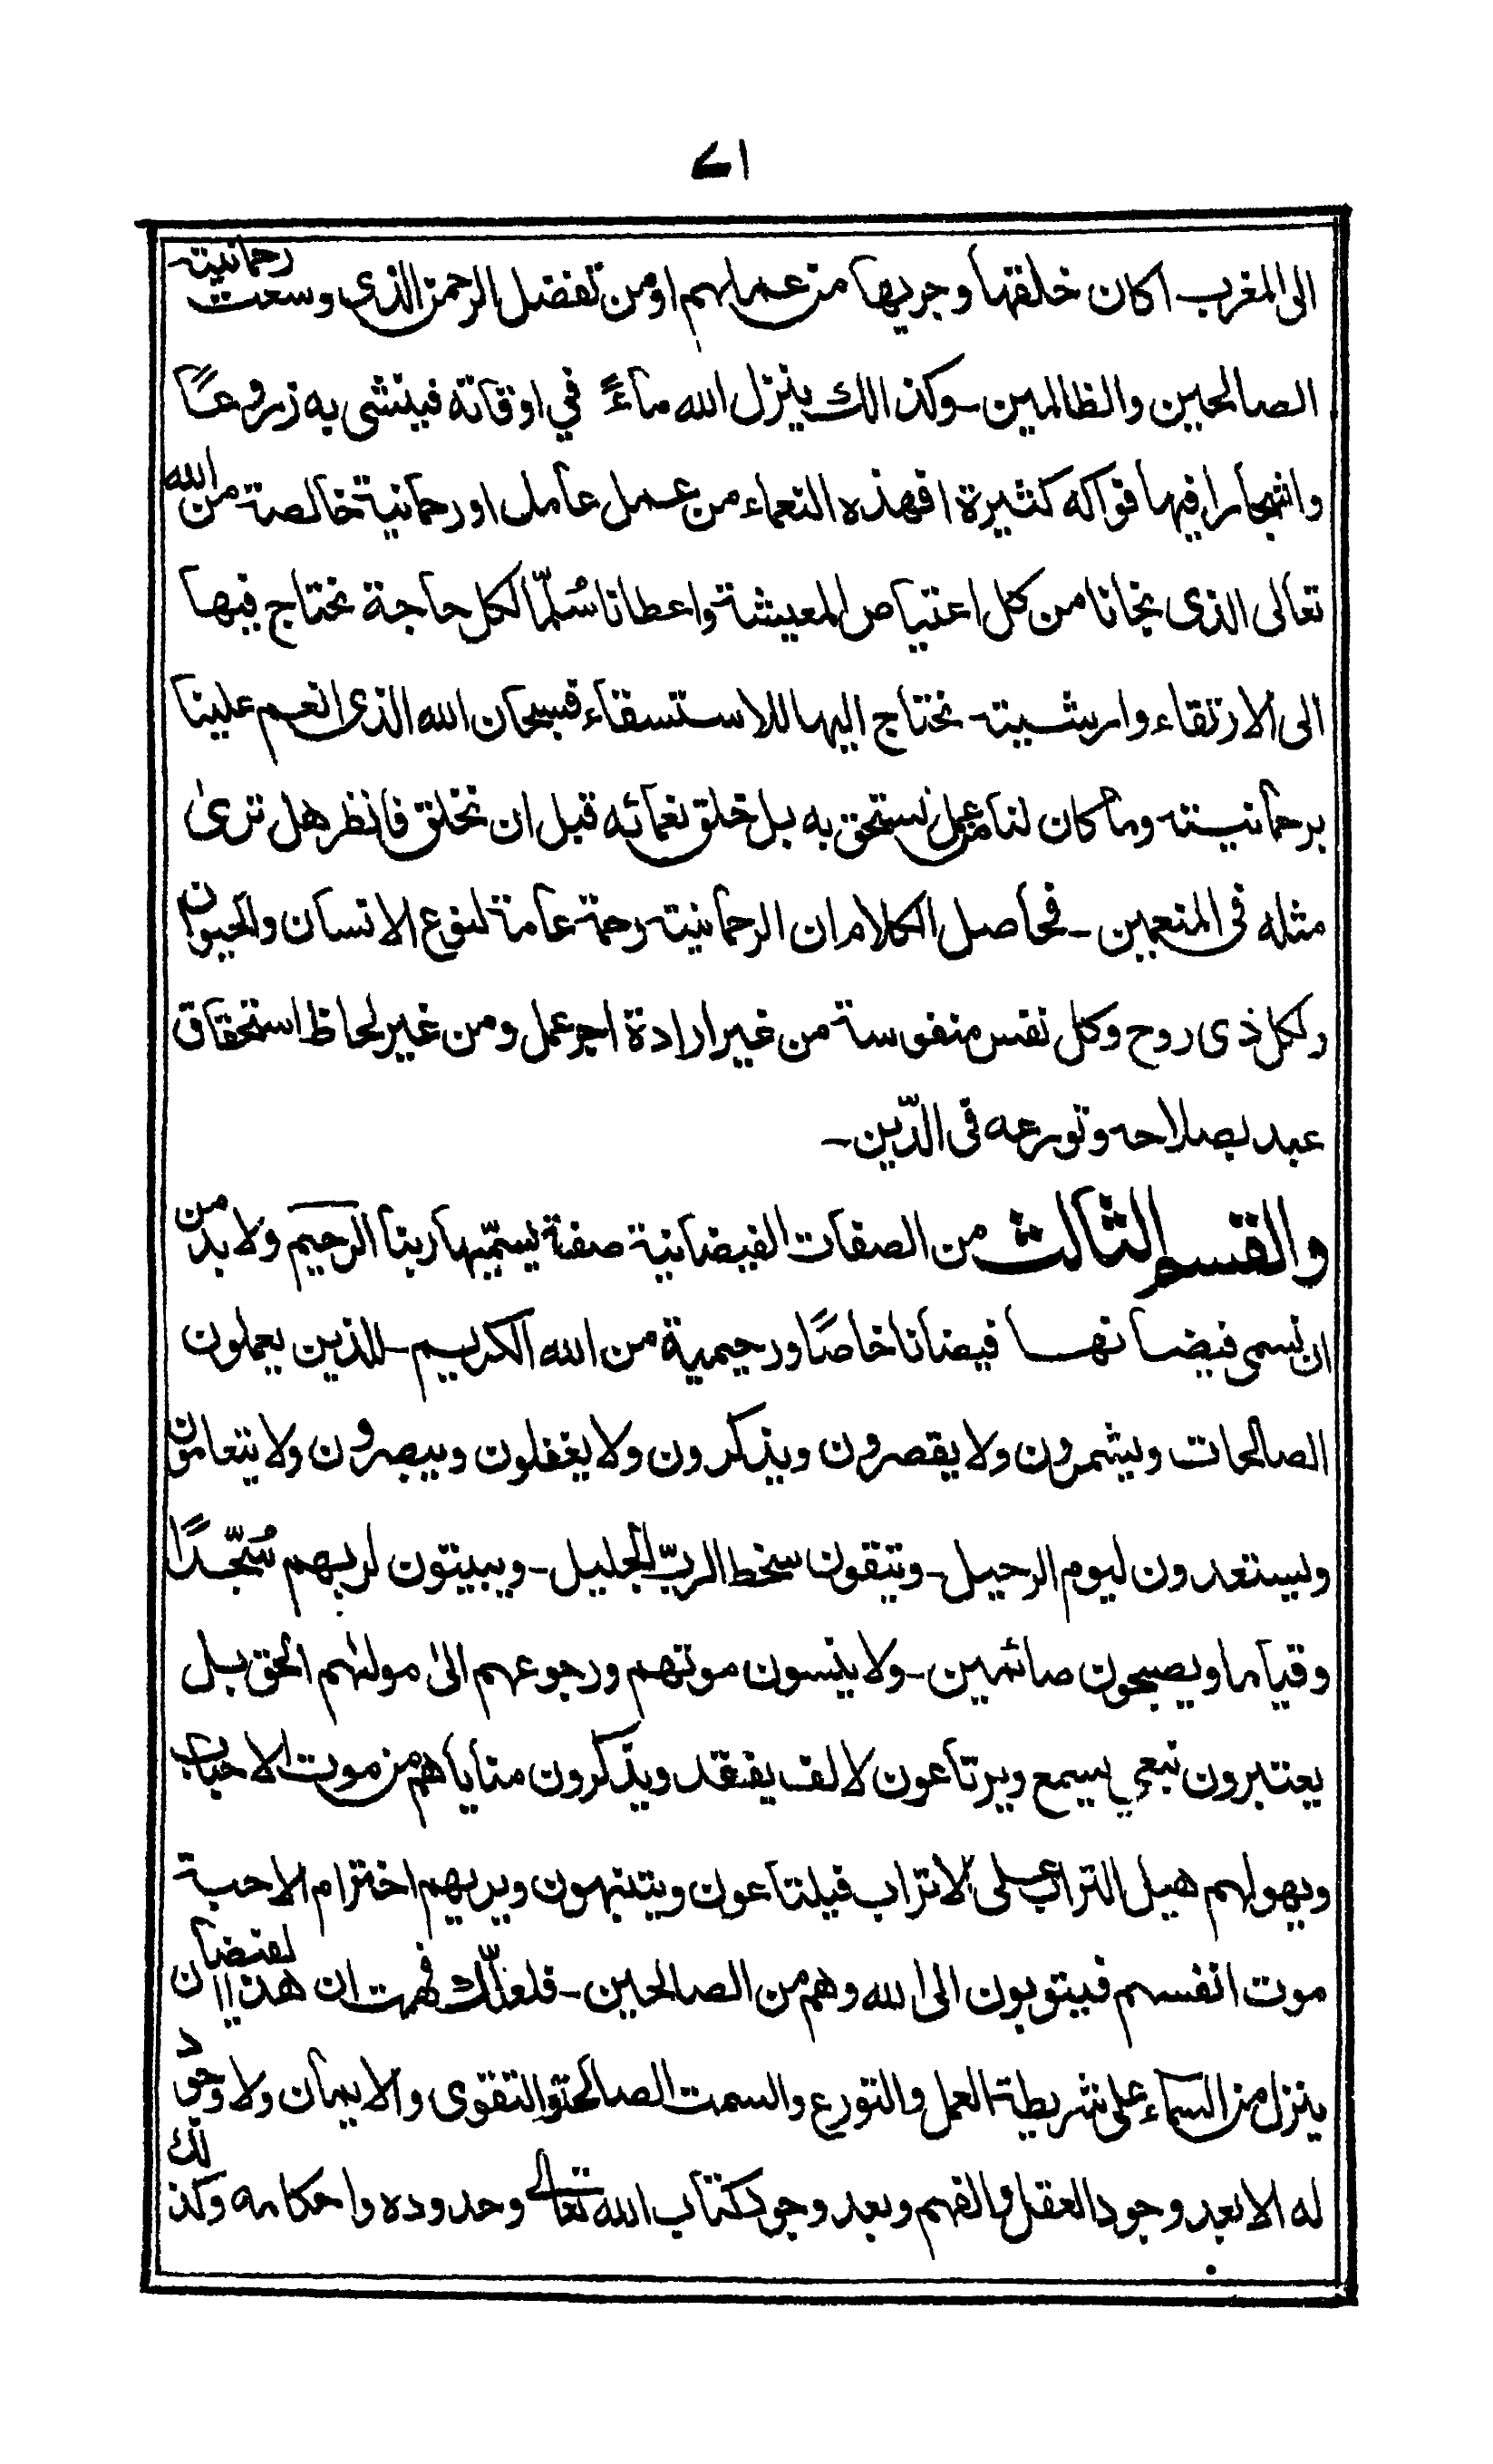 ۷۱
الى المغرب اكان خلقها وجريها من عملهم اومن تفضل الرحمن الذى وسعت رحمانيته
الصالحين والظالمين ـ وكذالك ينزل الله ماءً في اوقاته فينشى به زروعًا
واشجارا فيها فواكه كثيرة افهذه النعماء من عمل عامل او رحمانية خالصة من الله
تعالى الذى نجانا من كل اعتياص المعيشة واعطانا سُلّما لكل حاجة نحتاج فيها
الى الارتقاء وارشية نحتاج اليها للاستسقاء فسبحان الله الذى انعم علينا
برحمانيته وما كان لنا من عمل نستحق به بل خلق نعمائه قبل ان نخلق فانظر هل ترىٰ
مثله فى المنعمين ـ فحاصل الكلام ان الرحمانية رحمة عامة لنوع الانسان والحيوان
ولكل ذى روح وكل نفس منفوسة من غير ارادة اجر عمل ومن غير لحاظ استحقاق
عبد بصلاحه وتورعه فى الدّين ـ
والقسم الثالث من الصفات الفيضانية صفة يسمّيها ربنا الرحيم ولا بد من
ان نسمى فيضانها فيضانا خاصًا ورحيمية من الله الكريم ـ للذين يعملون
الصالحات ويشمرون ولا يقصرون ويذكرون ولا يغفلون ويبصرون ولا يتعامون
ويستعدون ليوم الرحيل ـ ويتقون سخط الربّ الجليل ـ ويبيتون لربهم سُجّدًا
وقياما ويصبحون صائمين ـ ولا ينسون موتهم ورجوعهم الىٰ مولٰهم الحق بل
يعتبرون بنعي يسمع ويرتاعون لالف يفقد ويذكرون مناياهم من موت الاحباب
ويهولهم هيل التراب على الاتراب فيلتاعون ويتنبهون ويريهم اخترام الاحبة
موت انفسهم فيتوبون الى الله وهم من الصالحين ـ فلعلّك فهمت ان هذا الفيضان
ينزل من السماء على شريطة العمل والتورع والسمت الصالح والتقوى والايمان ولا وجود
له الا بعد وجود العقل والفهم وبعد وجود كتاب الله تعالى وحدوده واحكامه وكذلك